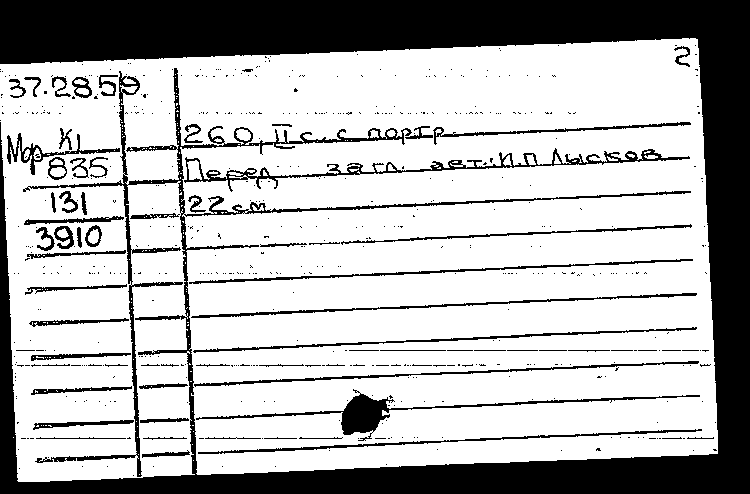 2
37.28.59.
Мор К1
835
131
3910
260, II с. с портр.
Перед загл. авт.: И.П. Лысков
22 см.